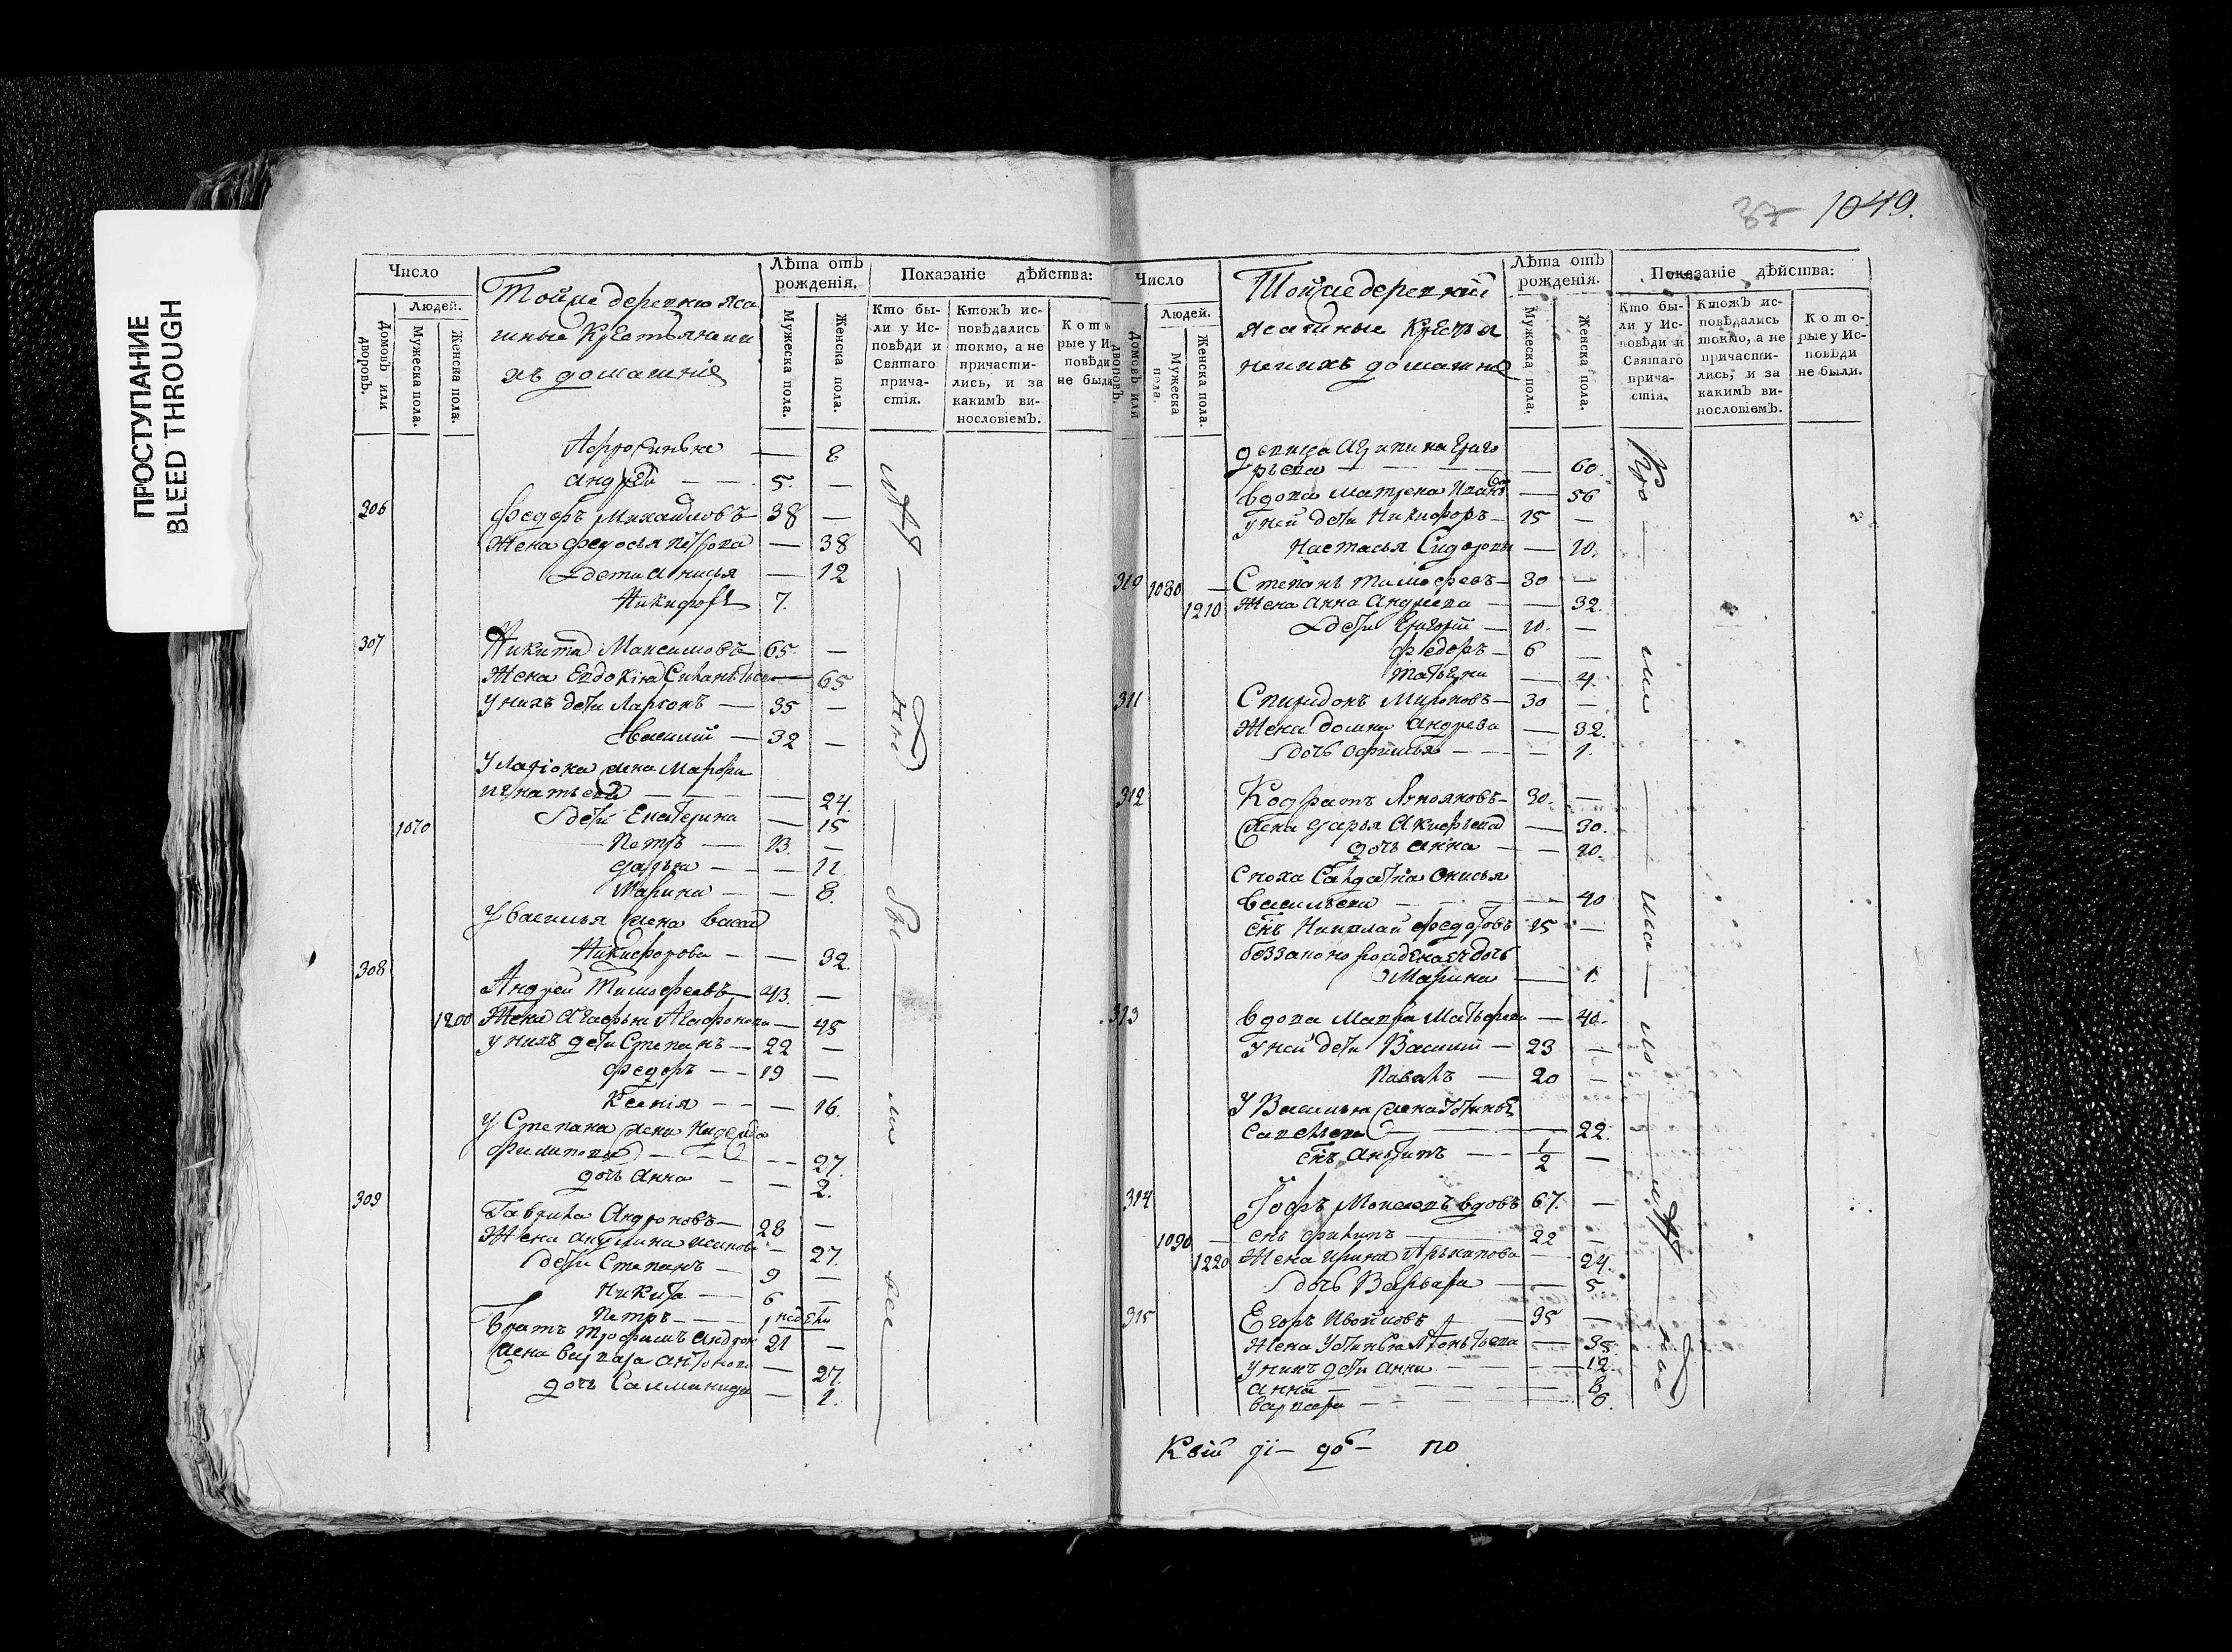 ПРОСТУПАНИЕ
BLEED THROUGH
Число
Людей.
Домовъ или дворовъ.
Мужеска пола.
Женска пола.
Тойже деревни яса
шные Крестьяне и и
хъ домашнiе
Лѣта отъ рожденiя.
Мужеска пола.
Женска пола.
Показанiе дѣйства:
Кто были у Исповѣди и Святаго причастiя.
Ктожъ исповѣдались токмо, а не причастились, и за какимъ винословiемъ.
Которые у Исповѣди не были
Афросинья — 8
Андрей — 5. —
306 Федоръ Михайловъ 38 —
Жена Федосья Петрова — 38
дети Анисья — 12
Никифоръ 7.
307 Никита Максимовъ 65 —
Жена Евдокiя — 65
У нихъ дети Ларiонъ — 35 —
Василий — 32 —
У Ларiона жена Марфа
Игнатьева — 24.
дети Екатерина — 15
1070 Петръ — 13. —
Дарья — 11.
Марина — 8.
У Василья жена Васса
Никифорова — 32.
308 Андрей Тимофеевъ 43. —
1200 Жена Агафья Агафонова — 45
У нихъ дети Степанъ — 22 —
Федоръ — 19 —
Ксенiя — 16.
У Степана жена
Филипова — 27.
дочь Анна — 2.
309 Гаврила Андроновъ — 28 —
Жена Акулина — 27.
дети Степанъ — 9 —
Никита — 6 —
Петръ — 1 недели
Братъ Трофимъ Андрон 21 —
Жена Варвара Антонова — 27.
дочь Саломанида — 1.
37 1049.
Число
Людей.
Домовъ или дворовъ.
Мужеска пола.
Женска пола.
Тойже деревни
ясашные Крестья
не и ихъ домашнiе
Лѣта отъ рожденiя.
Мужеска пола.
Женска пола.
Показанiе дѣйства:
Кто были у Исповѣди и Святаго причастiя.
Ктожъ исповѣдались токмо, а не причастились, и за какимъ винословiемъ.
Которые у Исповѣди не были.
девица Агрипина Григо
рьева — 60.
вдова Матрена — 56
у ней дети Никифоръ 15 —
Настасья Сидоровы — 10.
310 1080 Степанъ Тимофеевъ 30 —
1210 Жена Анна Андреева — 32.
дети Григорий — 10. —
Федоръ 6 —
Татьяна — 4.
311 Спиридонъ Мироновъ 30 —
Жена Домна Андреева — 32.
дочь — 1.
312 Кодратъ 30. —
Жена Дарья — 30.
дочь Анна — 10.
Сноха Салдатка Онисья
Васильева — 40
Снъ Николай Федотовъ 15 —
беззаконорожденая дочь
Марина — 1.
313 вдова Мавра — 40.
у ней дети Василий — 23 —
Павелъ — 20 —
У Василья жена Устинья
Савельева — 22.
Снъ Антипъ — 1/2 —
314 вдовъ 67. —
1090 снъ Филипъ — 22 —
1220 Жена Ирина Архипова — 24.
дочь Варвара — 5.
315 Егоръ 35 —
Жена Устинья — 35.
У нихъ дети Анна — 12
Анна — 8
Варвара — 6.